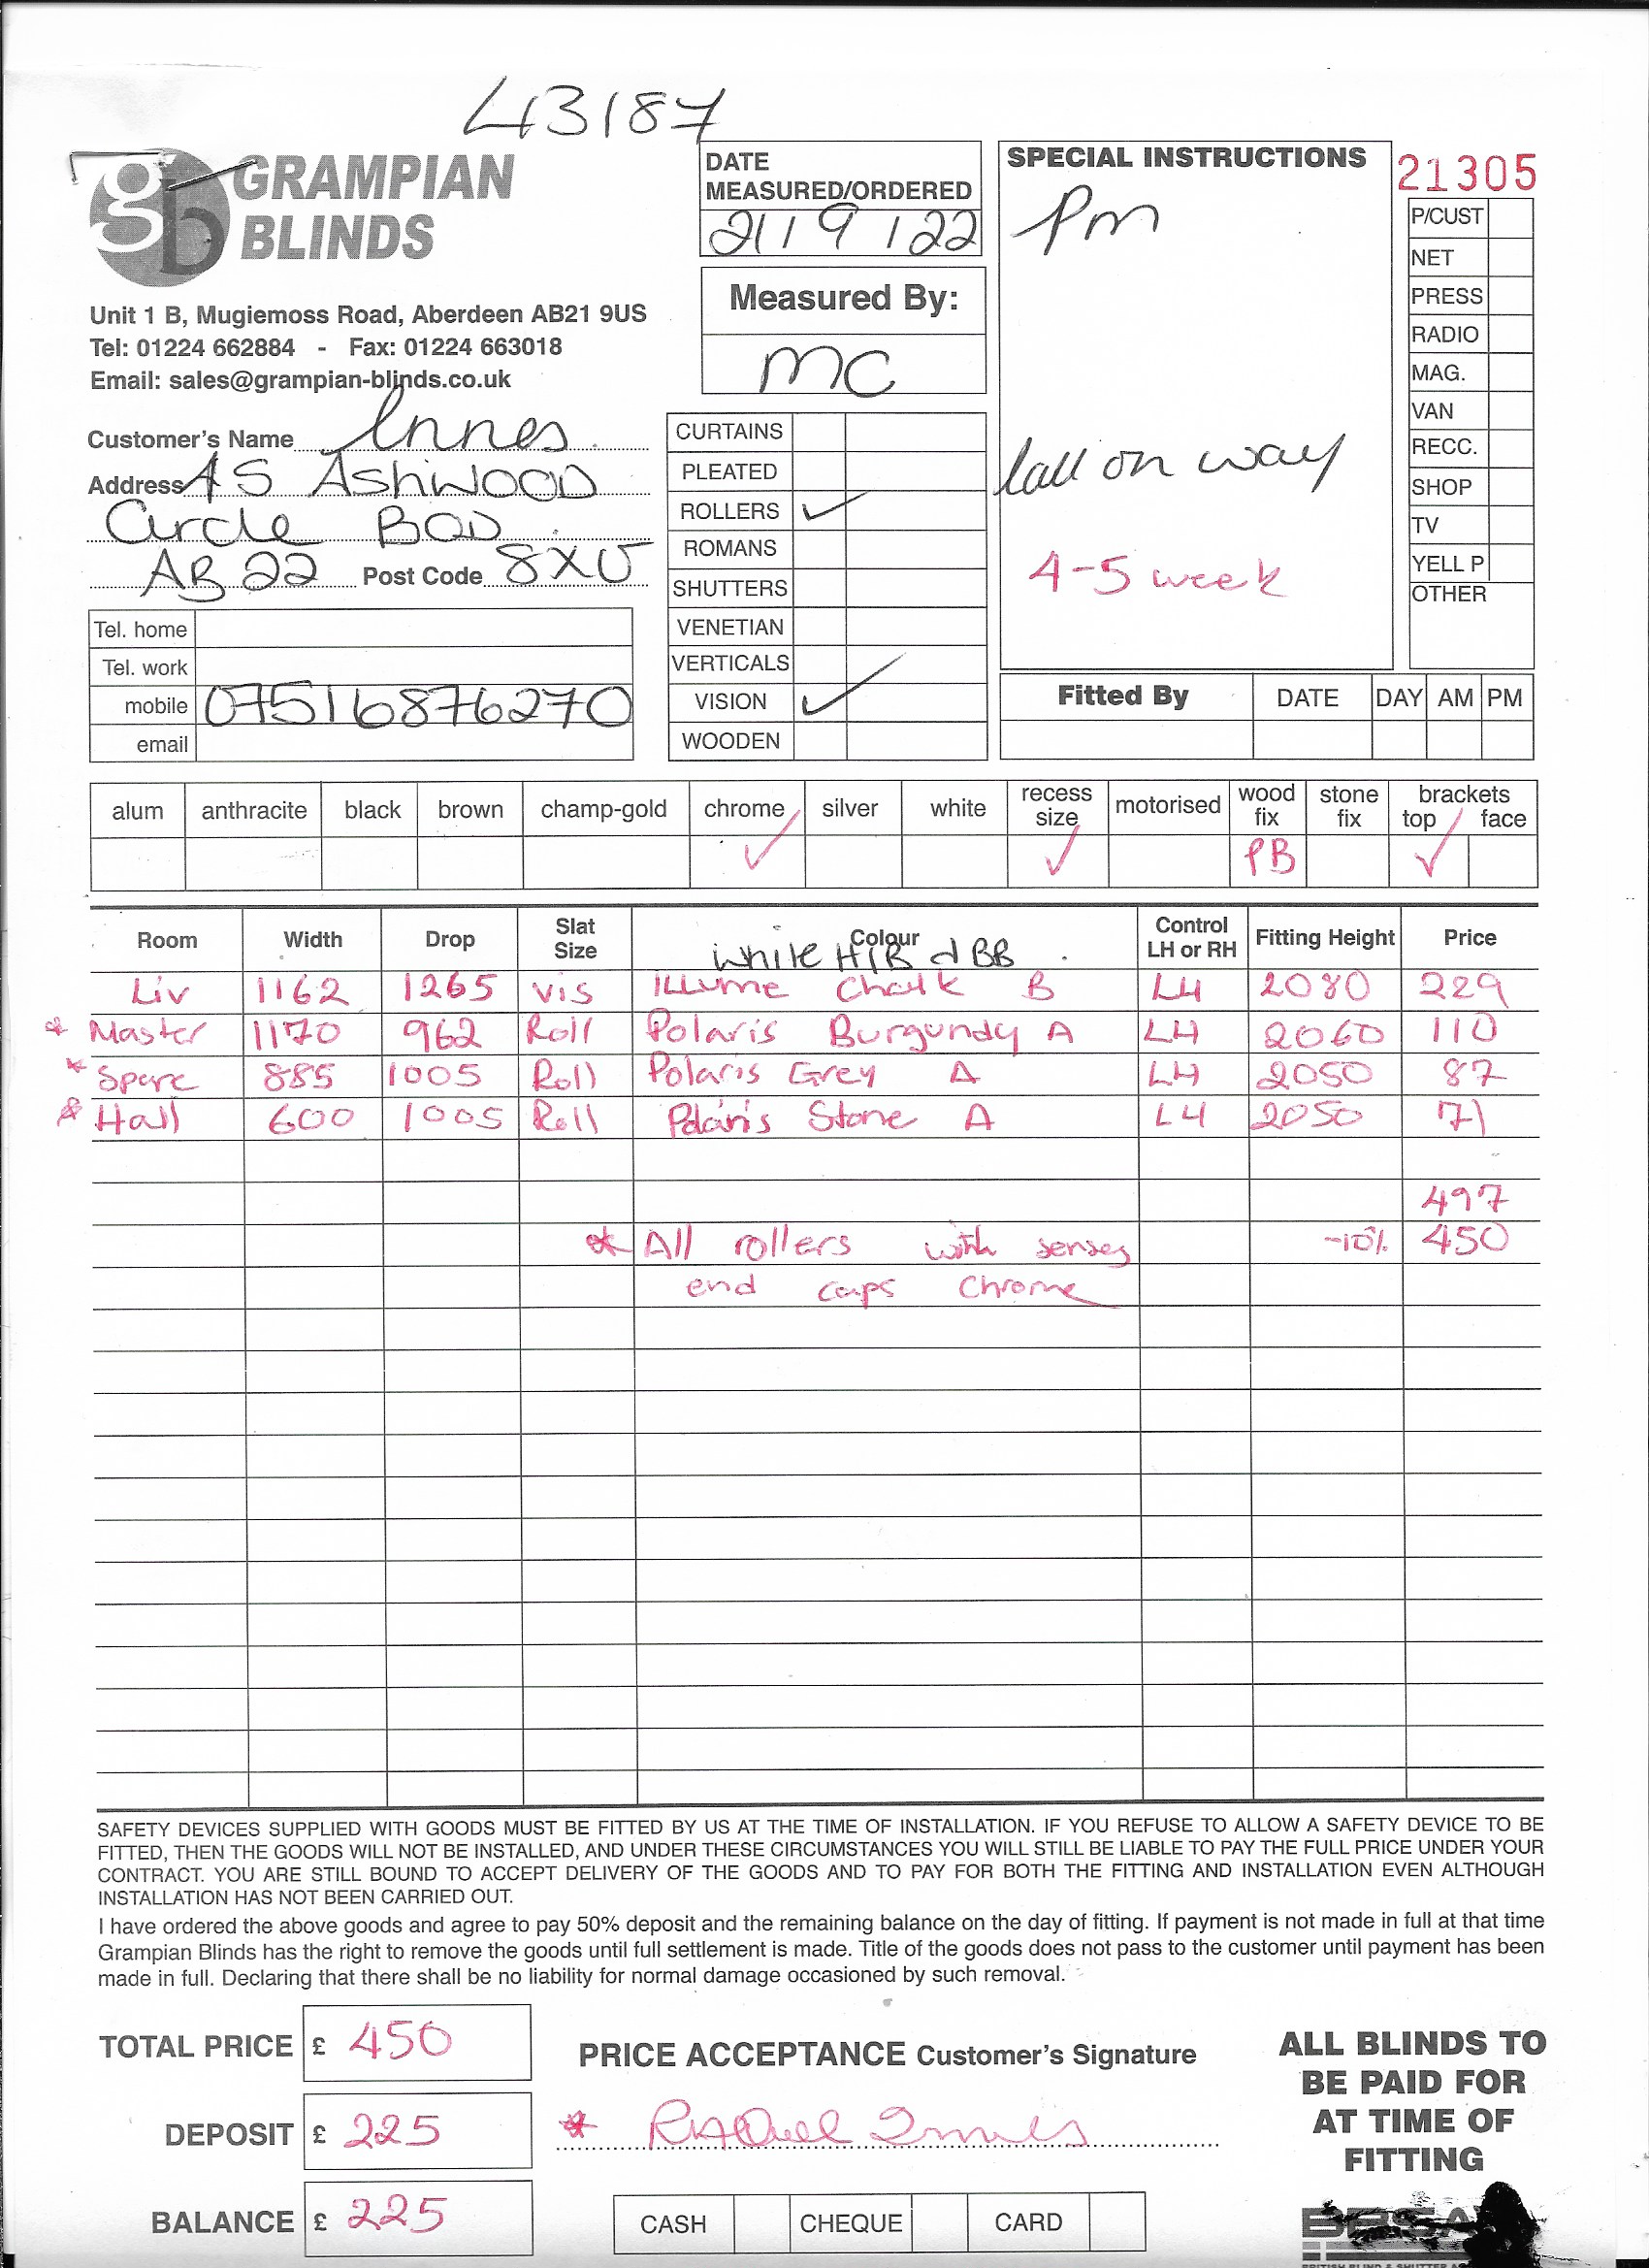 43187
GRAMPIAN
BLINDS
Unit 1 B, Mugiemoss Road, Aberdeen AB21 9US
Tel: 01224 662884 - Fax: 01224 663018
Email: sales@grampian-blinds.co.uk
DATE
MEASURED/ORDERED
21/9/22
Measured By:
MC
SPECIAL INSTRUCTIONS
Pm
Call on way
4-5 week
21305
P/CUST
NET
PRESS
RADIO
MAG.
VAN
RECC.
SHOP
TV
YELL P
OTHER
Customer's Name Innes
Address 45 Ashwood
Circle BOD
AB22 Post Code 8XU
Tel. home
Tel. work
mobile 07516876270
email
CURTAINS
PLEATED
ROLLERS ✓
ROMANS
SHUTTERS
VENETIAN
VERTICALS
VISION ✓
WOODEN
Fitted By DATE DAY AM PM
alum anthracite black brown champ-gold chrome silver white recess size motorised wood fix stone fix brackets top face
✓ ✓ PB ✓
Room Width Drop Slat Size Colour Control LH or RH Fitting Height Price
White H/R d BB
Liv 1162 1265 Vis Illume Chalk B LH 2080 229
* Master 1170 962 Roll Polaris Burgundy A LH 2060 110
* Spare 885 1005 Roll Polaris Grey A LH 2050 87
* Hall 600 1005 Roll Polaris Stone A LH 2050 71
497
* All rollers with senses -10% 450
end caps Chrome
SAFETY DEVICES SUPPLIED WITH GOODS MUST BE FITTED BY US AT THE TIME OF INSTALLATION. IF YOU REFUSE TO ALLOW A SAFETY DEVICE TO BE
FITTED, THEN THE GOODS WILL NOT BE INSTALLED, AND UNDER THESE CIRCUMSTANCES YOU WILL STILL BE LIABLE TO PAY THE FULL PRICE UNDER YOUR
CONTRACT. YOU ARE STILL BOUND TO ACCEPT DELIVERY OF THE GOODS AND TO PAY FOR BOTH THE FITTING AND INSTALLATION EVEN ALTHOUGH
INSTALLATION HAS NOT BEEN CARRIED OUT.
I have ordered the above goods and agree to pay 50% deposit and the remaining balance on the day of fitting. If payment is not made in full at that time
Grampian Blinds has the right to remove the goods until full settlement is made. Title of the goods does not pass to the customer until payment has been
made in full. Declaring that there shall be no liability for normal damage occasioned by such removal.
TOTAL PRICE £ 450
DEPOSIT £ 225
BALANCE £ 225
PRICE ACCEPTANCE Customer's Signature
* Rachael Innes
CASH CHEQUE CARD
ALL BLINDS TO
BE PAID FOR
AT TIME OF
FITTING